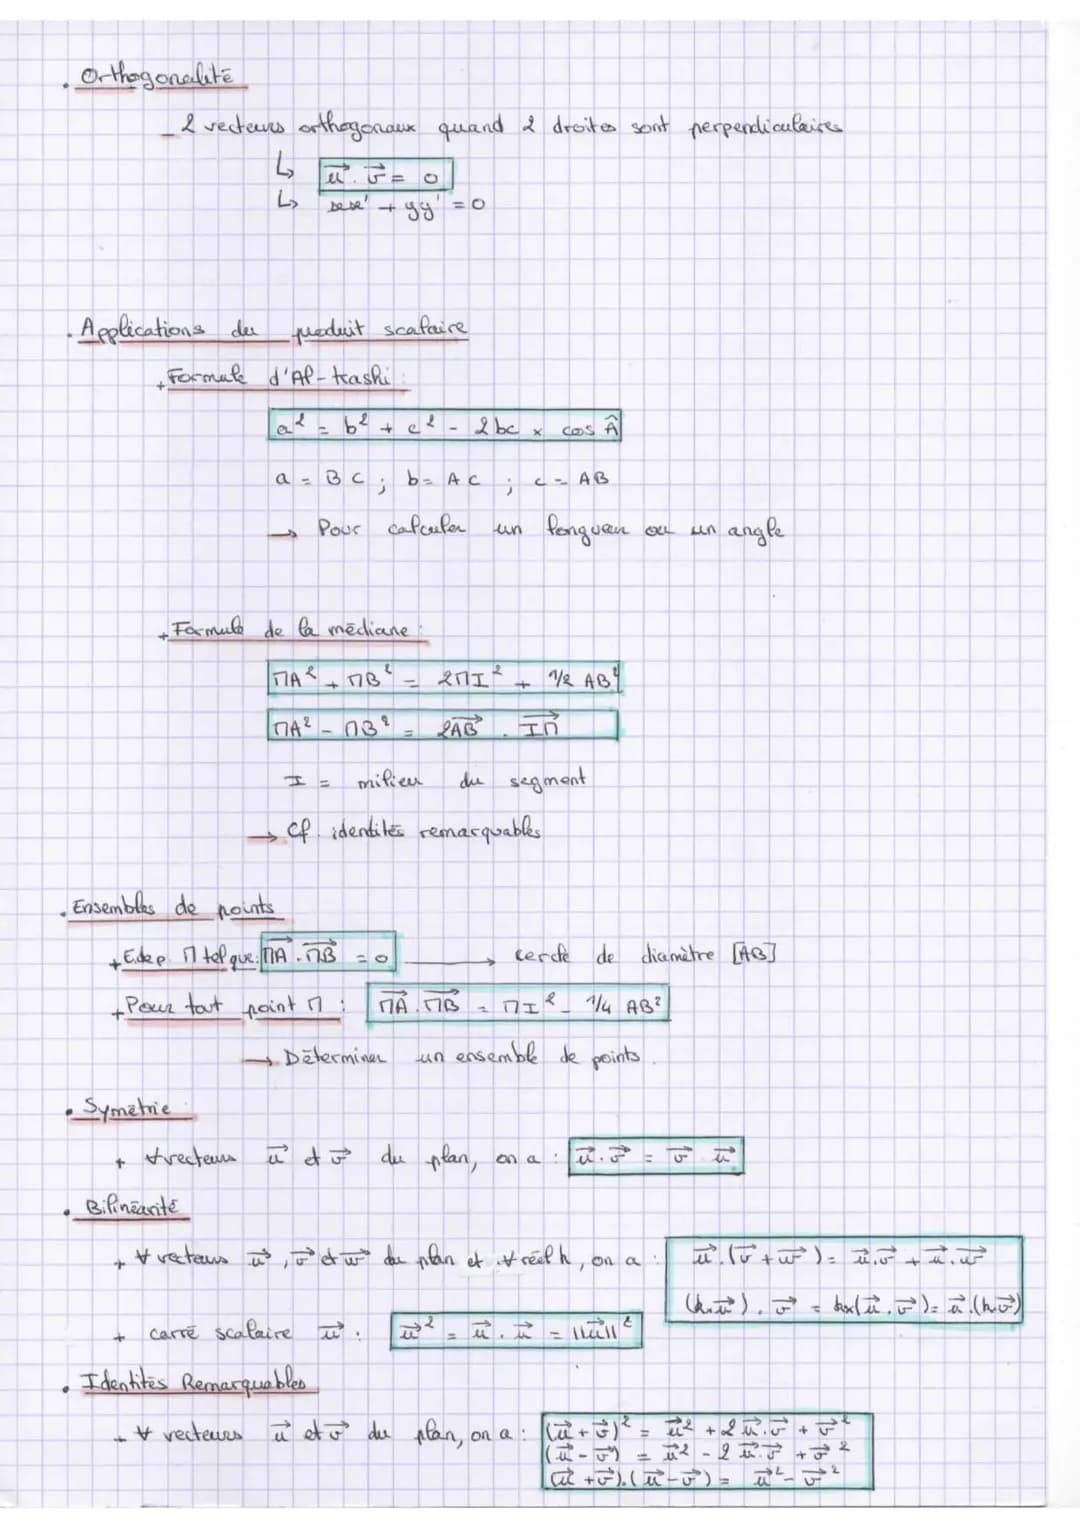 . Orthogonalité
_ 2 vecteurs orthogonaux quand 2 droites sont perpendiculaires
↳ u⃗ . v⃗ = 0
↳ xx' + yy' = 0
. Applications du produit scalaire
+ Formule d'Al-Kashi :
a² = b² + c² - 2bc × cos Â
a = BC ; b = AC ; c = AB
→ Pour calculer un longueur ou un angle
+ Formule de la médiane :
MA² + MB² = 2MI² + 1/2 AB²
MA² - MB² = 2AB⃗ . IM⃗
I = milieu du segment
→ Cf. identités remarquables
. Ensembles de points
+ E.de p. M tel que : MA⃗ . MB⃗ = 0 → cercle de diamètre [AB]
+ Pour tout point M : MA⃗ . MB⃗ = MI² - 1/4 AB²
→ Déterminer un ensemble de points.
. Symétrie :
+ ∀ vecteurs u⃗ et v⃗ du plan, on a : u⃗ . v⃗ = v⃗ . u⃗
. Bilinéarité
+ ∀ vecteurs u⃗, v⃗ et w⃗ du plan et ∀ réel k, on a : u⃗.(v⃗ + w⃗) = u⃗.v⃗ + u⃗.w⃗
(k.u⃗) . v⃗ = k×(u⃗ . v⃗) = u⃗.(k.v⃗)
+ carré scalaire u⃗ : u⃗² = u⃗ . u⃗ = ||u⃗||²
. Identités Remarquables
+ ∀ vecteurs u⃗ et v⃗ du plan, on a : (u⃗ + v⃗)² = u⃗² + 2 u⃗.v⃗ + v⃗²
(u⃗ - v⃗) = u⃗² - 2 u⃗.v⃗ + v⃗²
(u⃗ + v⃗).(u⃗ - v⃗) = u⃗² - v⃗²